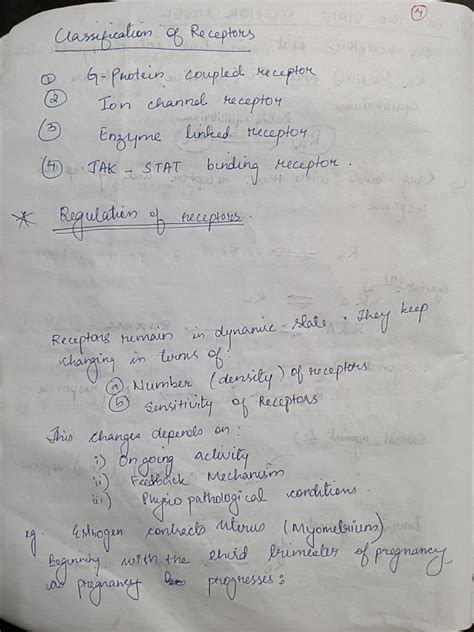 4
Classification of Receptors
① G-Protein coupled receptor
② Ion channel receptor
③ Enzyme linked receptor
④ JAK-STAT binding receptor.
* Regulation of receptors.
Receptors remain in dynamic state. They keep
changing in terms of:
ⓐ Number (density) of receptors
ⓑ Sensitivity of Receptors.
This changes depends on:
i) Ongoing activity
ii) Feedback Mechanism
iii) Physio pathological conditions.
eg. contracts Uterus (Myometrium)
Beginning with the third trimester of pregnancy
as pregnancy progresses: